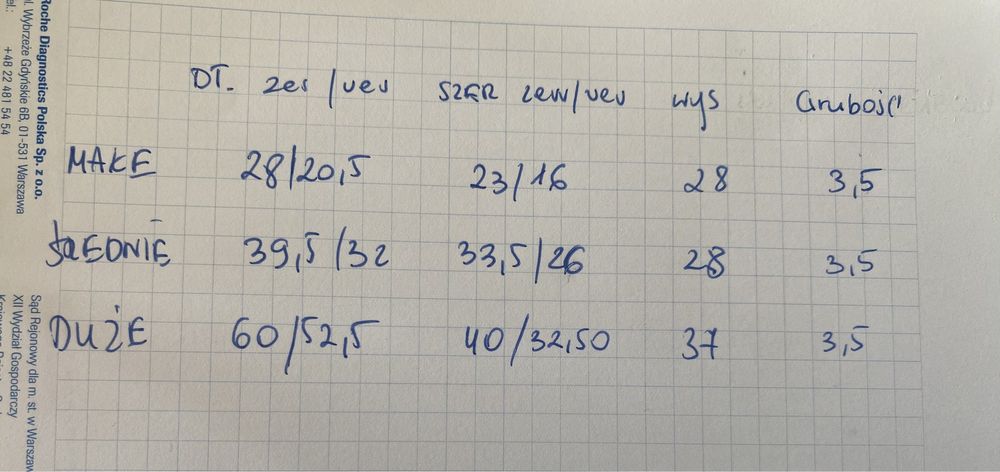 Roche Diagnostics Polska Sp. z o.o.
ul. Wybrzeże Gdyńskie 6B, 01-531 Warszawa
tel.:
+48 22 481 54 54
Sąd Rejonowy dla m. st. w Warszaw
XII Wydział Gospodarczy
DŁ. zew/wew SZER zew/wew wys Grubość
MAŁE 28/20,5 23/16 28 3,5
ŚREDNIE 39,5/32 33,5/26 28 3,5
DUŻE 60/52,5 40/32,50 37 3,5